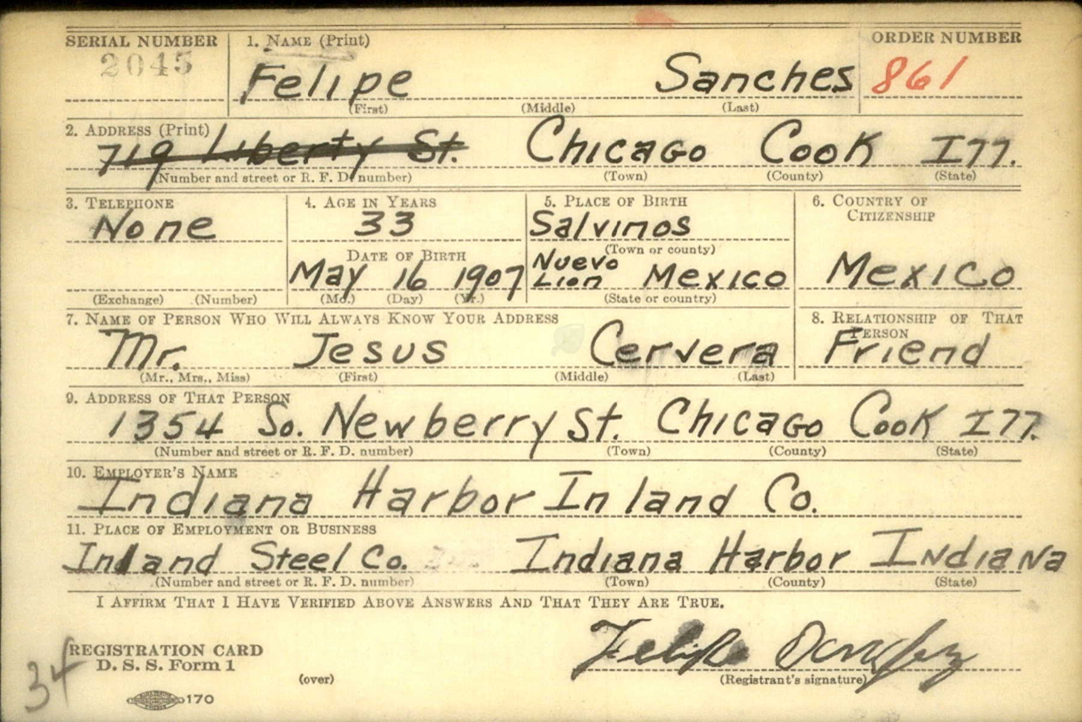 SERIAL NUMBER 1. NAME (Print) ORDER NUMBER
2045 Felipe Sanches 861
(First) (Middle) (Last)
2. ADDRESS (Print)
719 Liberty St. Chicago Cook Ill.
(Number and street or R. F. D. number) (Town) (County) (State)
3. TELEPHONE 4. AGE IN YEARS 5. PLACE OF BIRTH 6. COUNTRY OF CITIZENSHIP
None 33 Salvinos
(Town or county)
DATE OF BIRTH Nuevo
May 16 1907 Lion Mexico Mexico
(Exchange) (Number) (Mo.) (Day) (Yr.) (State or country)
7. NAME OF PERSON WHO WILL ALWAYS KNOW YOUR ADDRESS 8. RELATIONSHIP OF THAT PERSON
Mr. Jesus Cervera Friend
(Mr., Mrs., Miss) (First) (Middle) (Last)
9. ADDRESS OF THAT PERSON
1354 So. Newberry St. Chicago Cook Ill.
(Number and street or R. F. D. number) (Town) (County) (State)
10. EMPLOYER'S NAME
Indiana Harbor Inland Co.
11. PLACE OF EMPLOYMENT OR BUSINESS
Inland Steel Co. Indiana Harbor Indiana
(Number and street or R. F. D. number) (Town) (County) (State)
I AFFIRM THAT I HAVE VERIFIED ABOVE ANSWERS AND THAT THEY ARE TRUE.
REGISTRATION CARD
D. S. S. Form 1 Felipe
34 (over) (Registrant's signature)
170